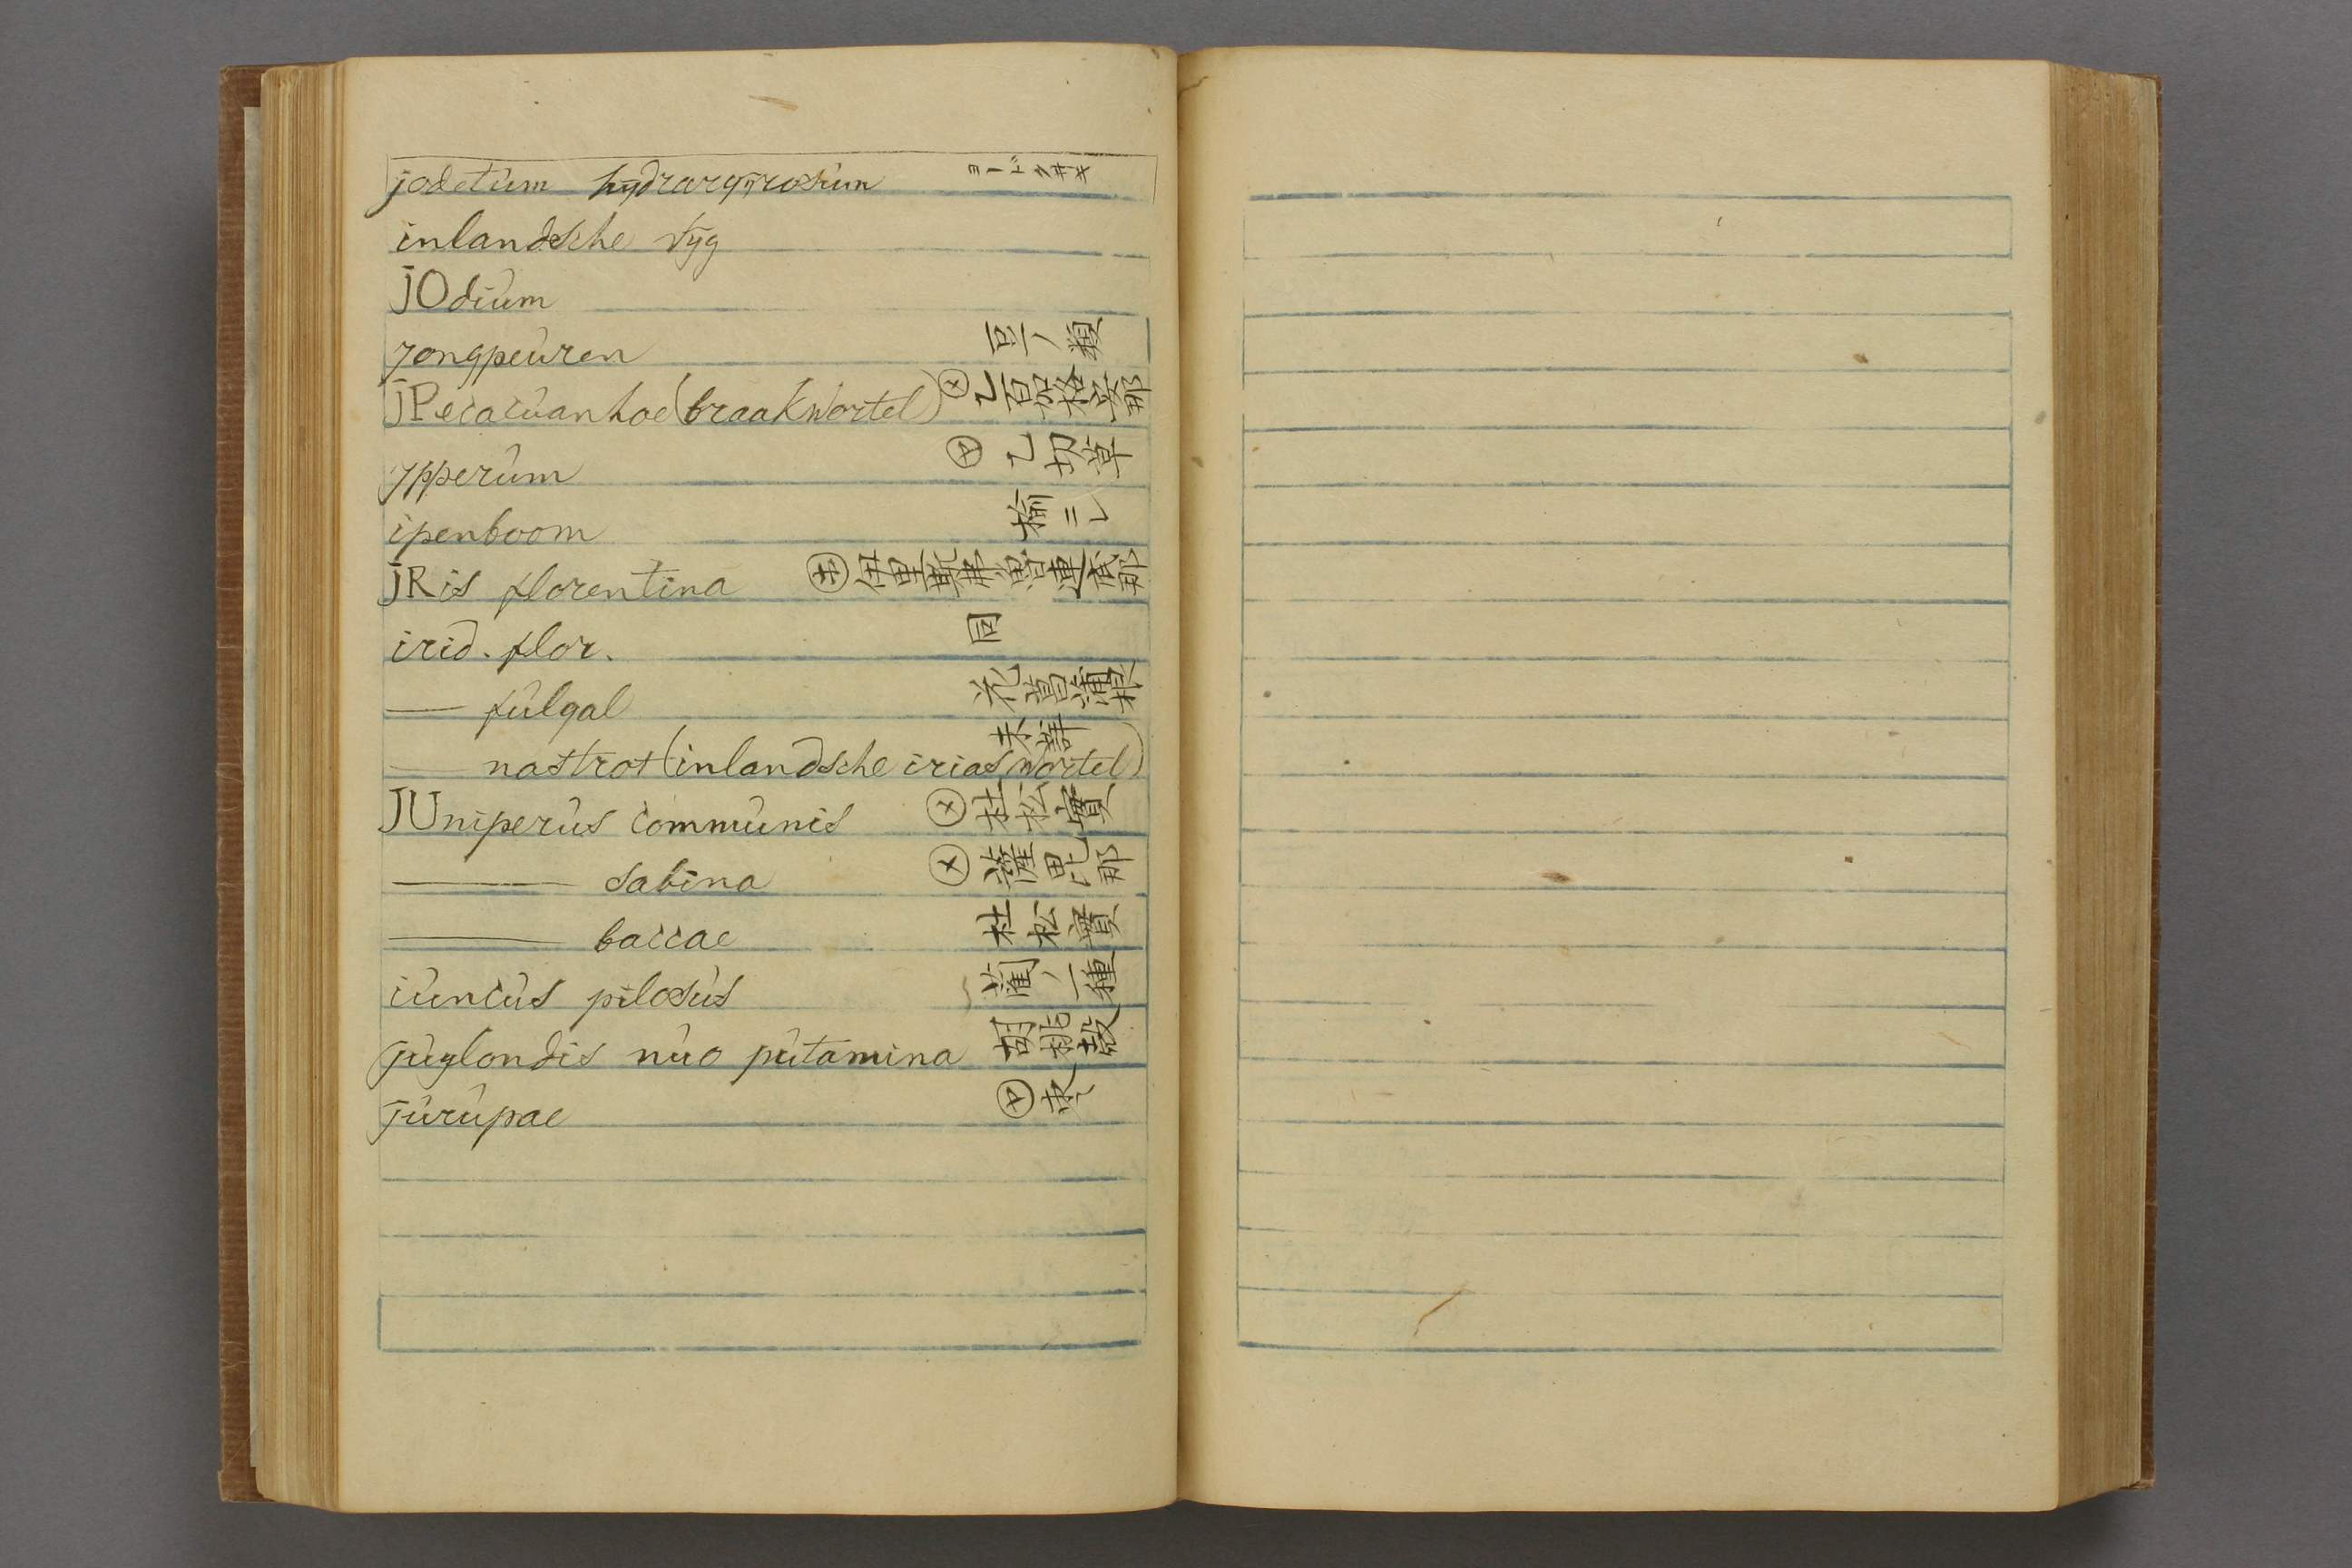 jodetum hydrargyrosum
inlandsche vyg
jOdium
jongpeuren 豆ノ類
jPecacuanhoe (braakwortel) 乙百加格安那
ypperum 乙切草
ipenboom 榆ニレ
jRis florentina 伊里斯弗魯連底那
irid. flor. 同
— fulgal 花菖蒲根
— nastrot (inlandsche irias wortel) 未詳
JUniperus communis 杜松實
— sabina 薩毘那
— baccae 杜松實
iuncus pilosus 藺ノ一種
juglondis nuo putamina 胡桃殼
jurupae 棗